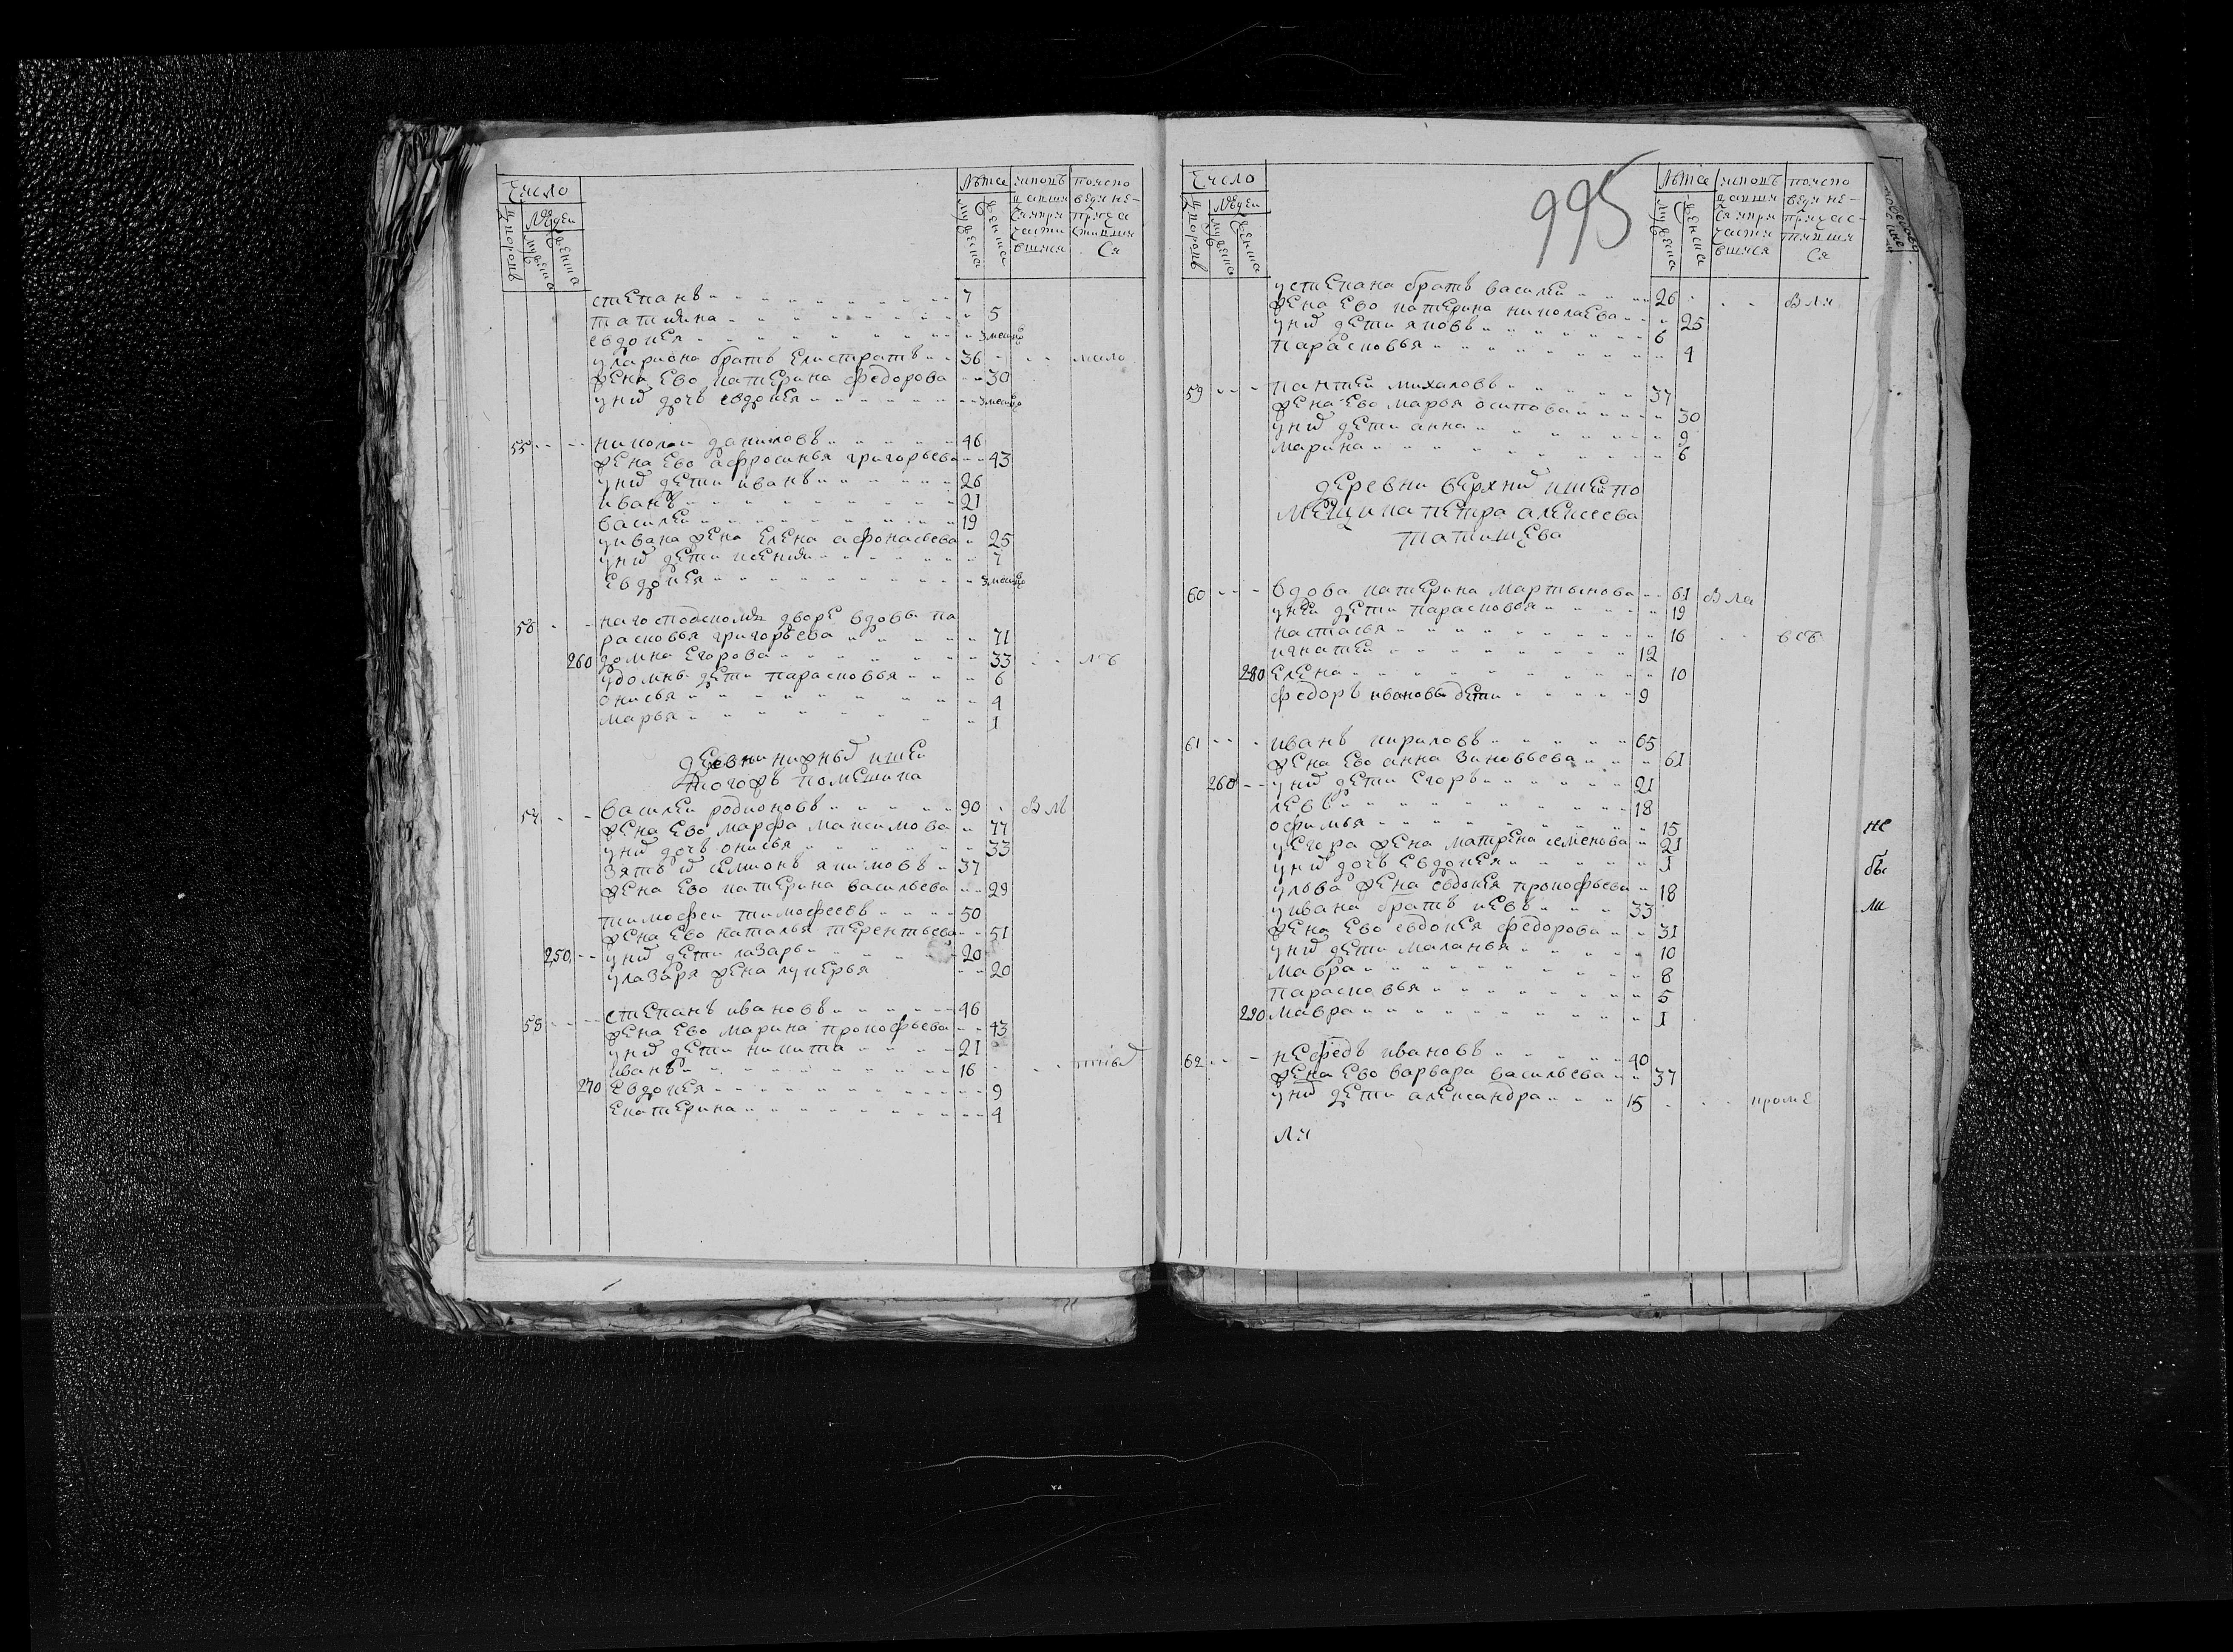 Число
дворовъ
людеи
мужеска
женска
Лѣта
мужеска
женска
исповѣ
давшия
ся и при
части
вшияся
по испо
веди не-
прича
стившия
ся
степанъ 7
татияна 5
евдокея 3 месецо
у лариона братъ елистратъ 36
жена ево катерина федорова 30
у них дочь евдокея 3 месецо
55 николаи даниловъ 46
жена ево афросинья григорьева 43
у них дети иванъ 26
иванъ 21
василеи 19
у ивана жена елена афонасьева 25
у них дети ксения 7
евдокея 3 месецо
56 на господскомъ дворе вдовы па
расковья григорьева 71
260 домна егорова 33
у домны дети парасковья 6
онисья 4
марья 1
деревни нижных ишеи
тогожъ помещика
57 василеи родионовъ 90
жена ево марфа максимова 77
у них дочь онисья 33
зять их семионъ якимовъ 37
жена ево катерина васильева 29
тимофеи тимофеевъ 50
жена ево наталья терентьева 51
250 у них дети лазарь 20
у лазаря жена лукерья 20
58 степанъ ивановъ 46
жена ево марина прокофьева 43
у них дети никита 21
иванъ 16
270 евдокея 9
екатерина 4
995
Число
дворовъ
людеи
мужеска
женска
Лѣта
мужеска
женска
исповѣ
давшия
ся и при
части
вшияся
по испо
веди не-
причас-
тившия
ся
у степана братъ василеи 26
жена ево катерина николаева 25
у них дети яковъ 6
парасковья 4
59 пантеи михаловъ 37
жена ево марья осипова 30
у них дети анна 9
марина 6
деревни верхних ишеи по
мещика петра алексеева
татищева
60 вдова катерина мартынова 61
у неи дети парасковья 19
настасья 16
игнатеи 12
280 елена 10
федоръ ивановы дети 9
61 иванъ кириловъ 65
жена ево анна зиновьева 61
260 у них дети егоръ 21
левъ 18
офимья 15
у егора жена матрена семенова 21
у них дочь евдокея 1
у лва жена евдокея прокофьева 18
у ивана братъ левъ 33
жена ево евдокея федорова 31
у них дети маланья 10
мавра 8
парасковья 5
290 мавра 1
62 нефедъ ивановъ 40
жена ево варвара васильева 37
у них дети александра 15
не
бы
ли